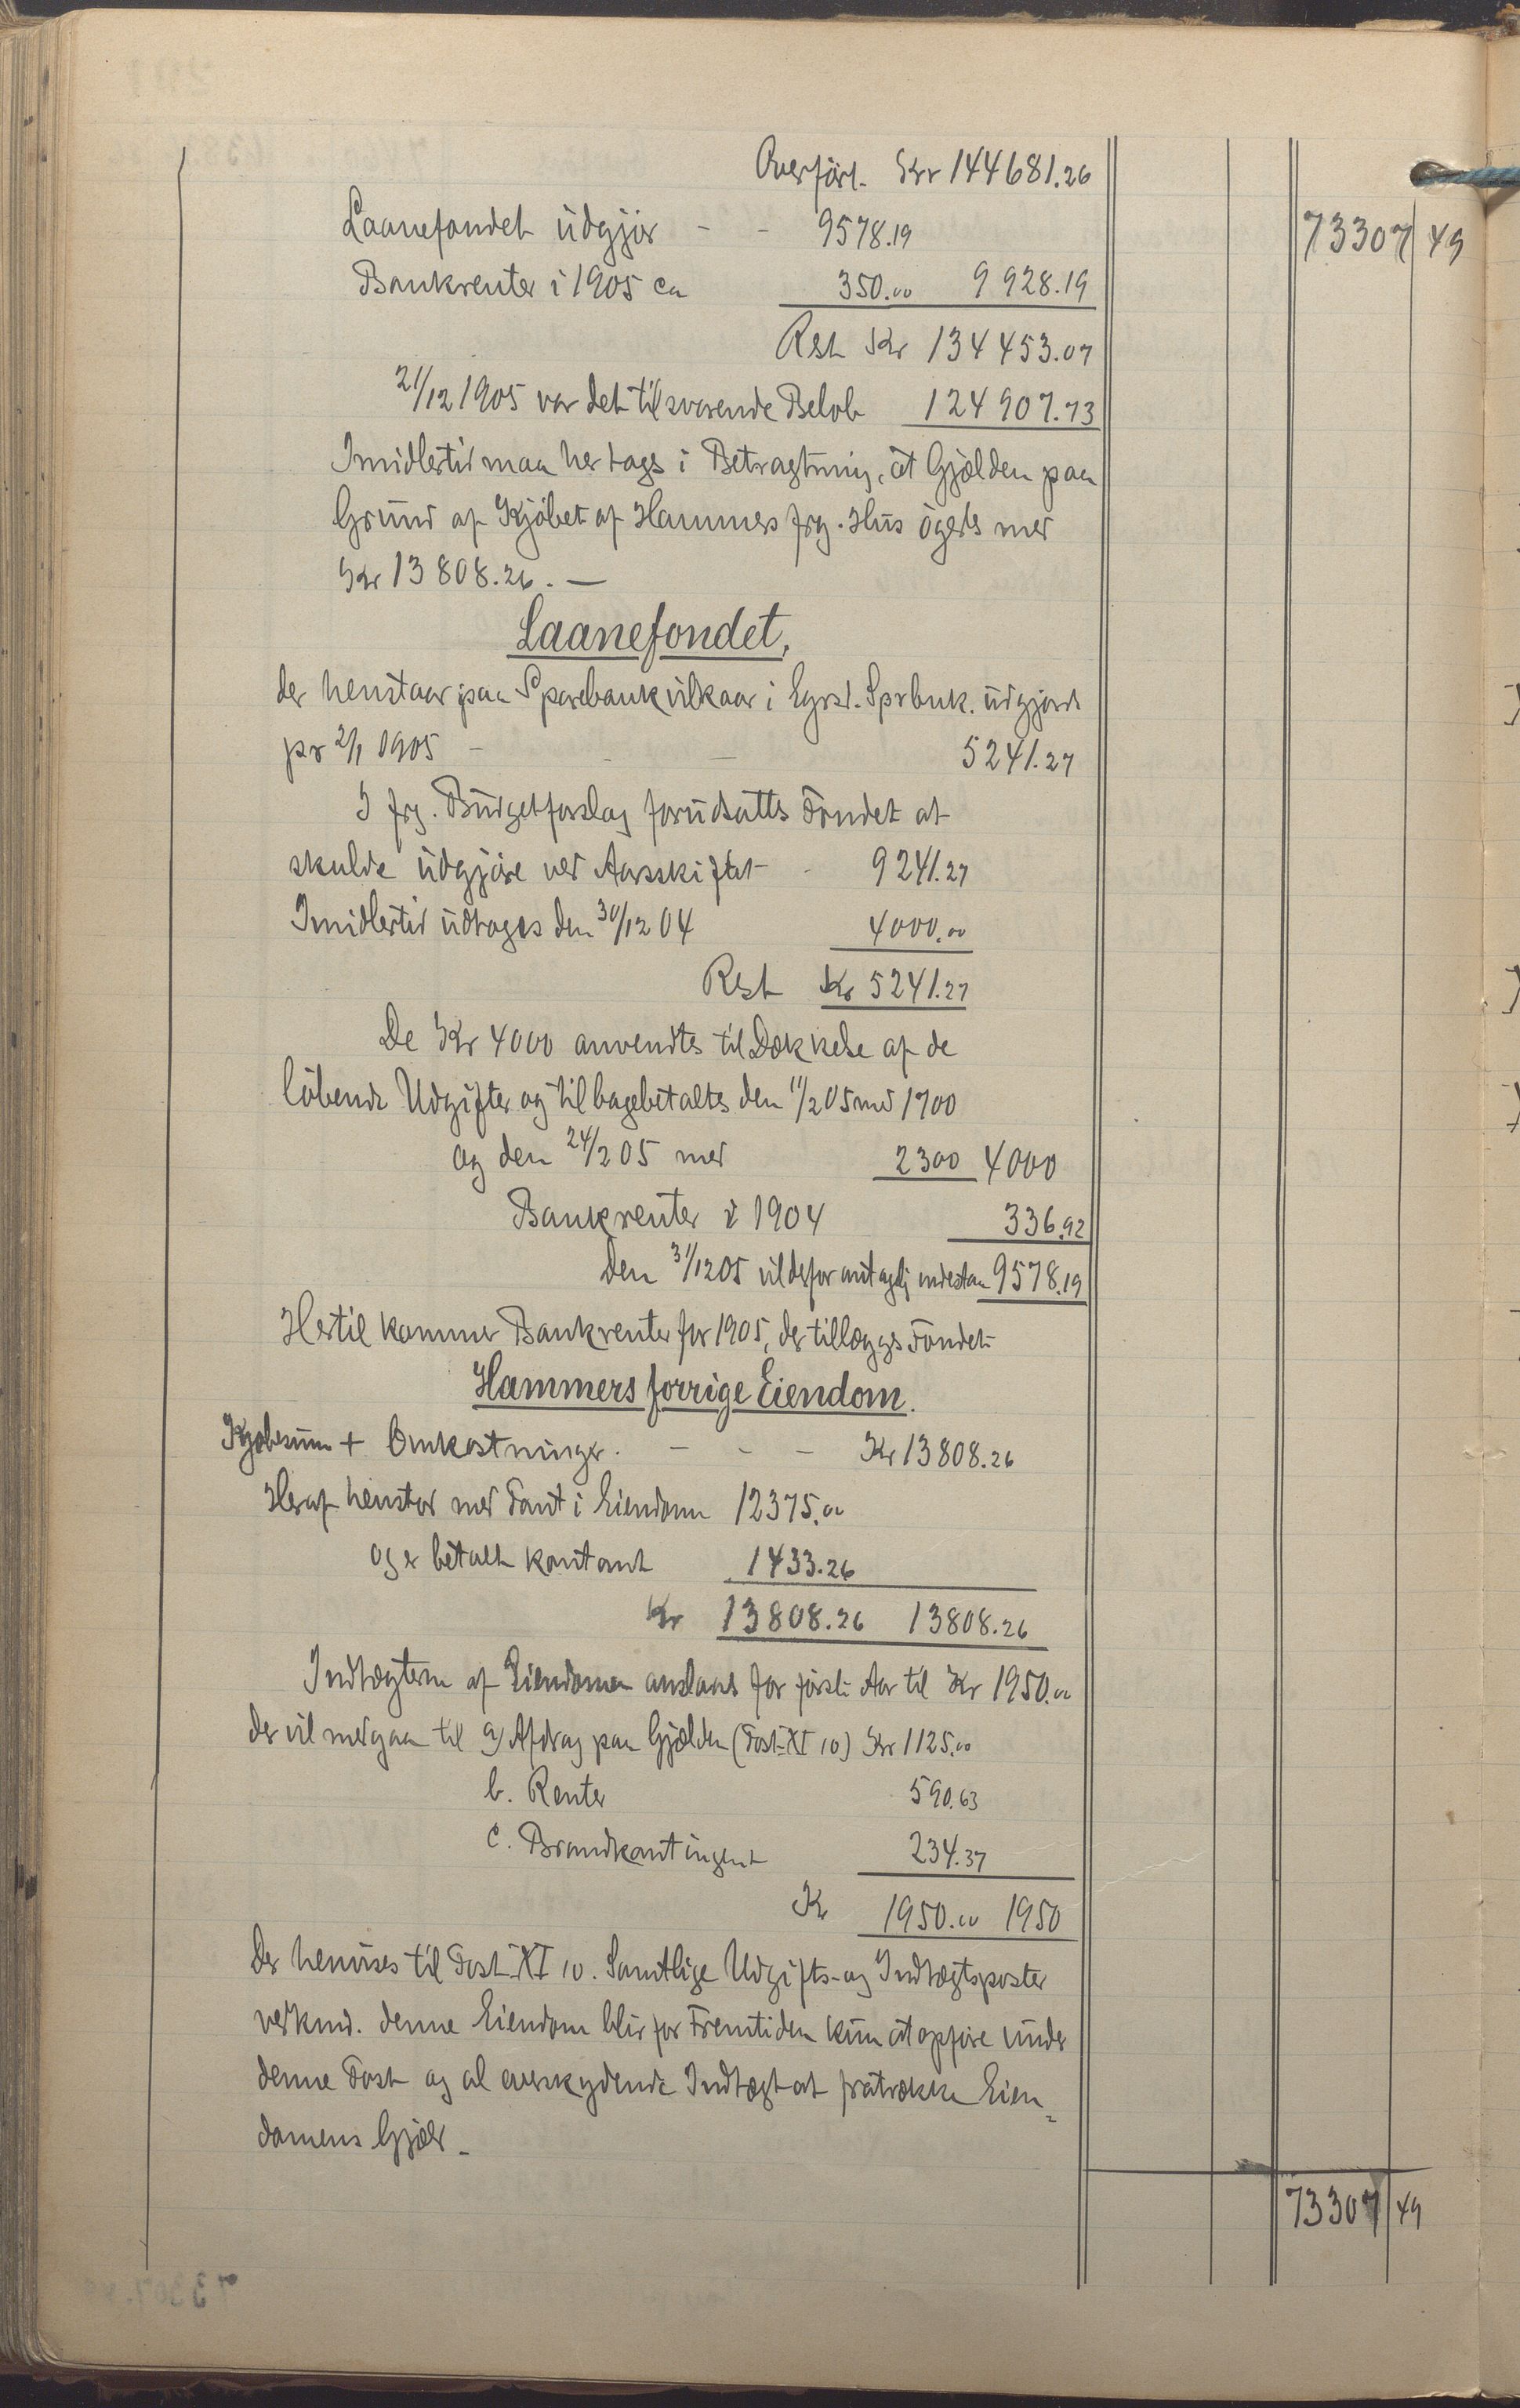 Overført. Kr 144681.26
Laanefondet udgjør - - 9578.19 73307 49
Bankrenter i 1905 ca 350.00 9928.19
Rest Kr 134453.07
21/12 1905 var det tilsvarende Beløb 124907.73
Imidlertid maa her tages i Betragtning, at Gjælden paa
Grund af Kjøbet af Hammers frg. Hus øgedes med
Kr 13808.26. —
Laanefondet,
der henstaar paa Sparebankvilkaar i Egrsd. Sprbnk. udgjorde
pr 2/1 1905 - - - 5241.27
I frg. Budgetforslag forudsattes Fondet at
skulde udgjøre ved Aarsskiftet - 9241.27
Imidlertid udtoges den 30/12 04 4000.00
Rest Kr 5241.27
De Kr 4000 anvendtes til Dækkelse af de
løbende Udgifter og tilbagebetaltes den 11/2 05 med 1700
og den 24/2 05 med 2300 4000
Bankrenter i 1904 336.92
Den 31/12 05 vil derfor antagelig indestaa 9578.19
Hertil kommer Bankrenter for 1905, der tillægges Fondet
Hammers forrige Eiendom.
Kjøbesum + Omkostninger. - - - Kr 13808.26
Heraf henstar med Pant i Eiendomn 12375.00
og er betalt kontant 1433.26
Kr 13808.26 13808.26
Indtægtern af Eiendomen anslaaes for første Aar til Kr 1950.00
der vil medgaa til a) Afdrag paa Gjælden (Post XI 10) Kr 1125.00
b. Renter 590.63
c. Brandkontingent 234.37
Kr 1950.00 1950
Der henvises til Post XI 10. Samtlige Udgifts- og Indtægtsposter
vedkmd. denne Eiendom blir for Fremtiden kun at opføre under
denne Post og al overskydende Indtægt at fratrække Eien=
domens Gjæld.
73307 49